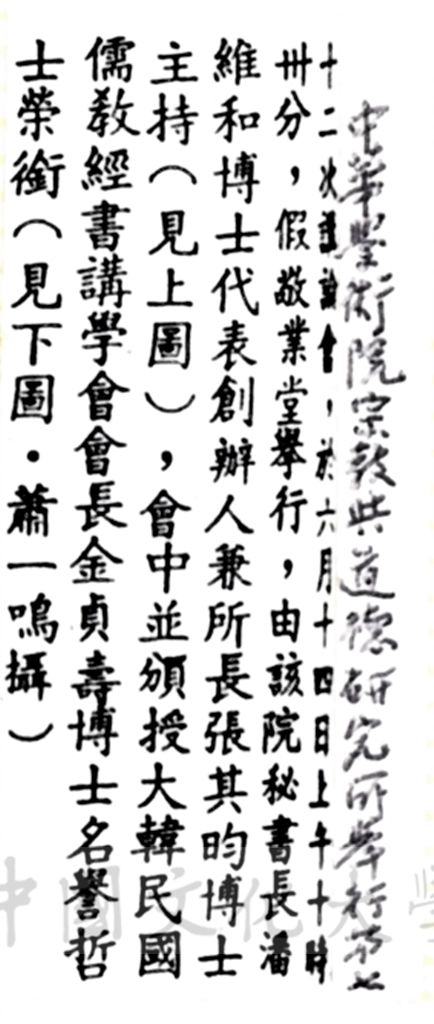 中華學術院宗教與道德研究所舉行第七
十二次座談會，於六月十四日上午十時
卅分，假敬業堂舉行，由該院秘書長潘
維和博士代表創辦人兼所長張其昀博士
主持（見上圖），會中並頒授大韓民國
儒教經書講學會會長金貞壽博士名譽哲
士榮銜（見下圖．蕭一鳴攝）
中國文化大學